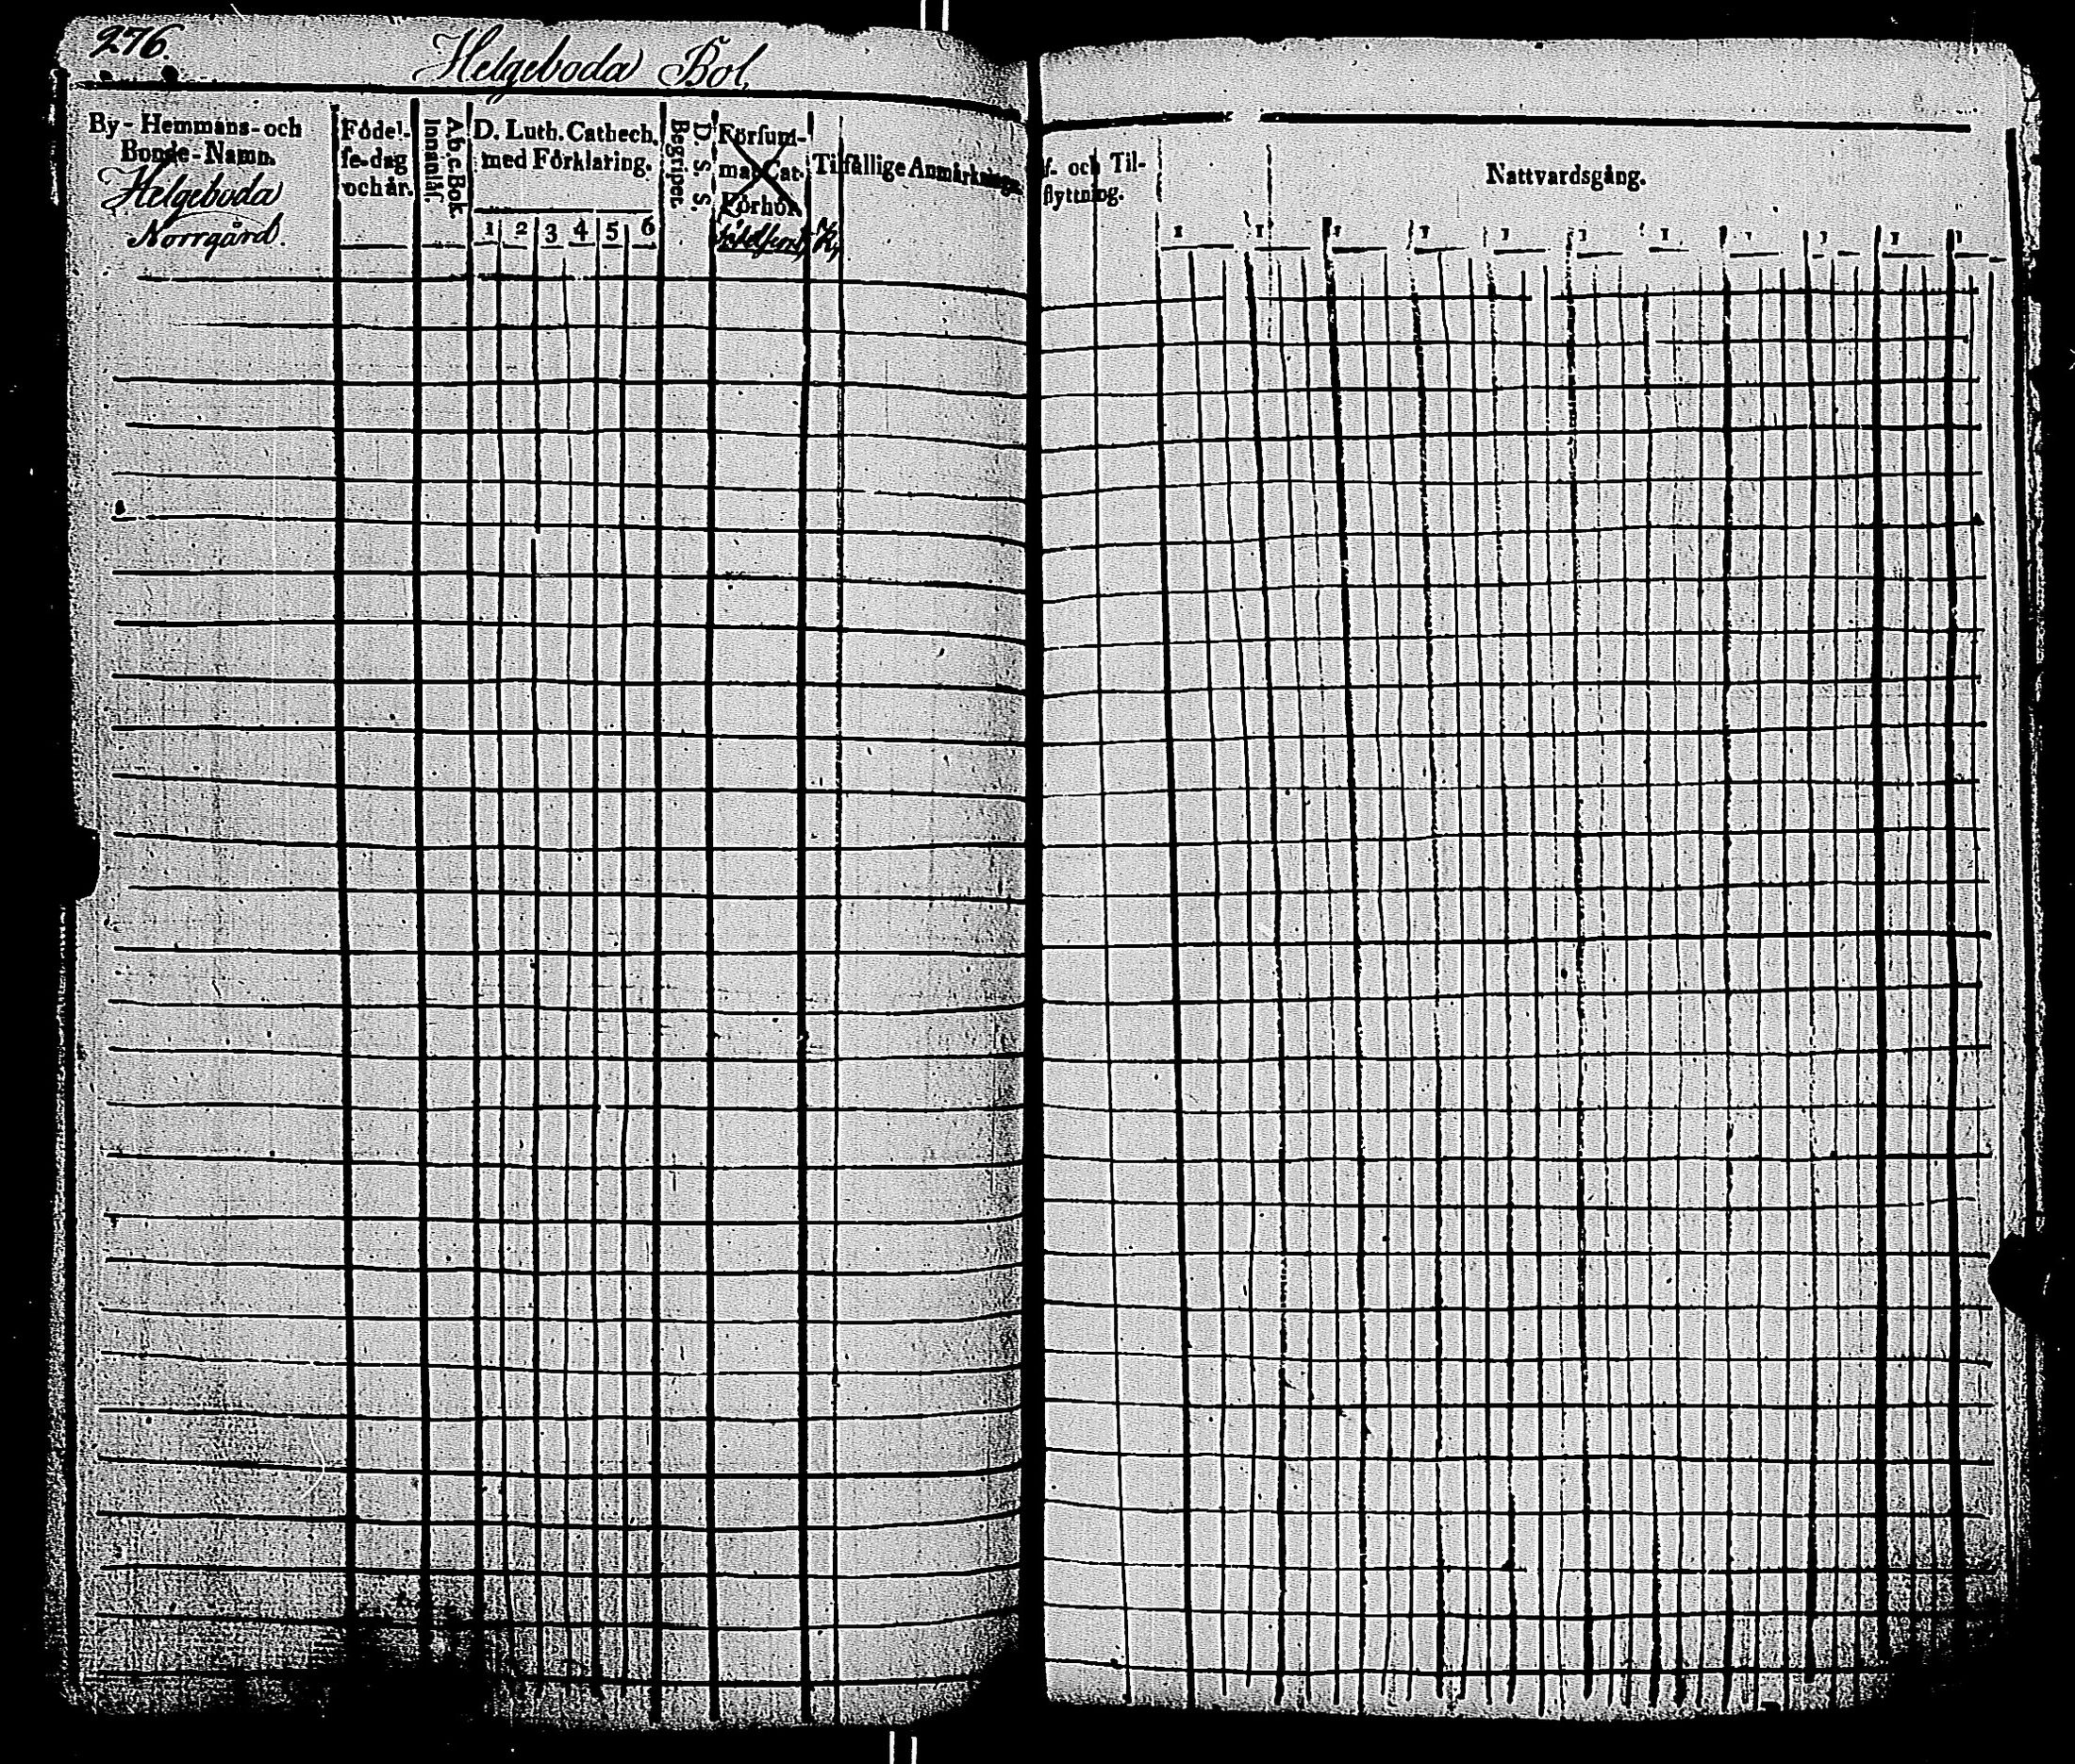 276.
Helgeboda Bol,
By- Hemmans- och
Bonde-Namn.
Helgeboda
Norrgård.
Födel-
se-dag
och år.
A.b.c. Bok.
Innanlär.
D. Luth. Cathech.
med Förklaring.
1 2 3 4 5 6
D. S. S.
Begriper.
Försum-
mat Cat.
Förhör.
Tilfällige Anmärkningar
f- och Til-
flyttning.
Nattvardsgång.
1 1 1 1 1 1 1 1 1 1 1